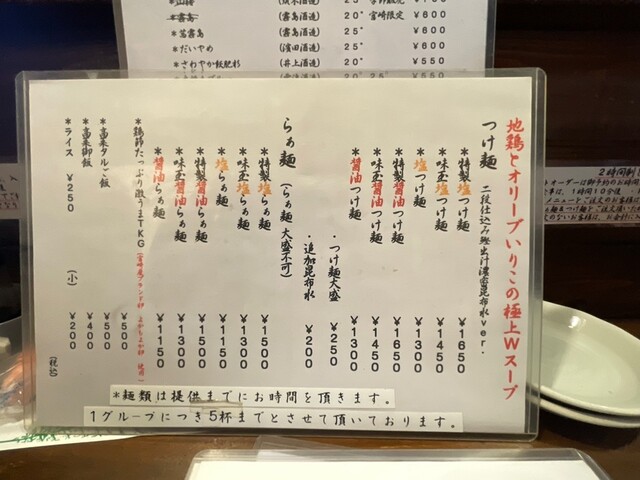 (霧島酒造) 20° 宮崎限定 ¥600
*萬霧島 (霧島酒造) 25° ¥600
*だいやめ (濱田酒造) 25° ¥600
*さわやか飫肥杉 (井上酒造) 20° ¥550
地鶏とオリーブいりこの極上Wスープ
つけ麺 二段仕込み鰹出汁濃密昆布水ver.
*特製塩つけ麺 ¥1650
*味玉塩つけ麺 ¥1450
*塩つけ麺 ¥1300
*特製醤油つけ麺 ¥1650
*味玉醤油つけ麺 ¥1450
*醤油つけ麺 ¥1300
・つけ麺大盛 ¥250
・追加昆布水 ¥200
らぁ麺 (らぁ麺 大盛不可)
*特製塩らぁ麺 ¥1500
*味玉塩らぁ麺 ¥1300
*塩らぁ麺 ¥1150
*特製醤油らぁ麺 ¥1500
*味玉醤油らぁ麺 ¥1300
*醤油らぁ麺 ¥1150
*鶏節たっぷり激うまTKG ¥500
*高菜タルご飯 ¥500
*高菜御飯 ¥400
*ライス ¥250 (小) ¥200
(税込)
*麺類は提供までにお時間を頂きます。
1グループにつき5杯までとさせて頂いております。